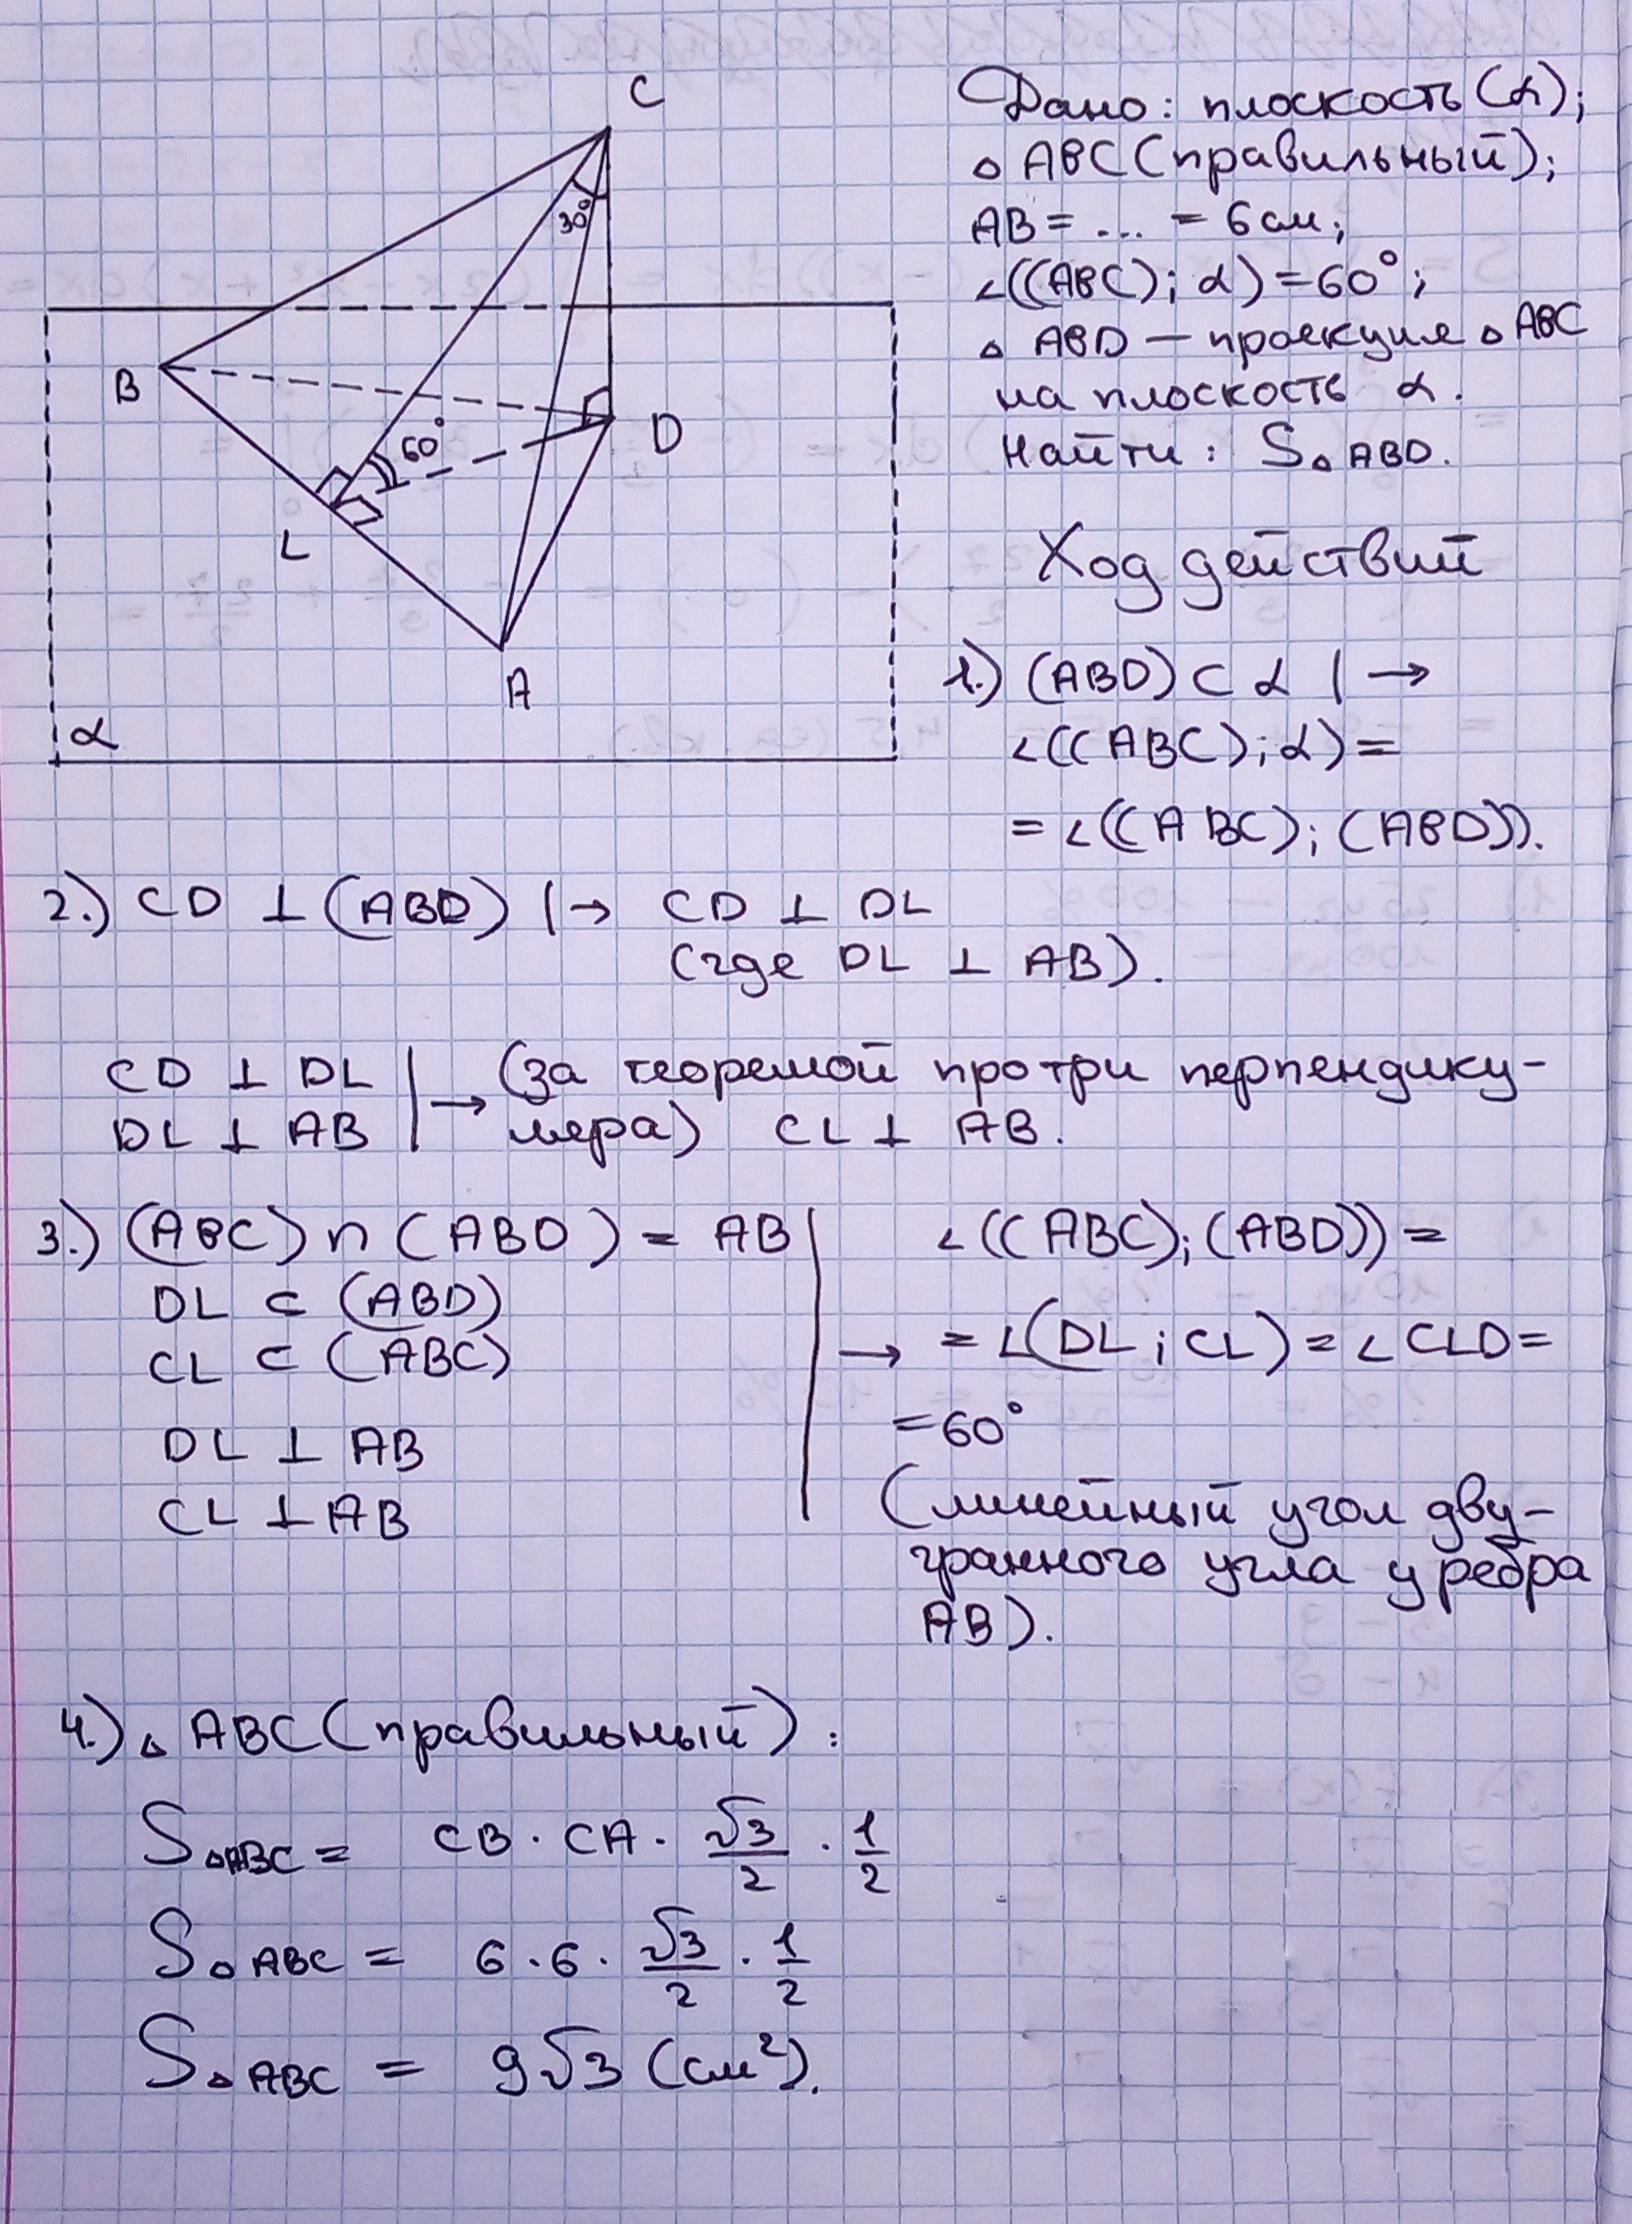 C
30°
B
60°
D
L
A
α
Дано: плоскость (α);
△ ABC (правильный);
AB = ... = 6 см;
∠((ABC); α) = 60°;
△ ABD — проекция △ ABC
на плоскость α.
Найти: S△ ABD.
Ход действий
1.) (ABD) ⊂ α | →
∠((ABC); α) =
= ∠((ABC); (ABD)).
2.) CD ⊥ (ABD) | → CD ⊥ DL
(где DL ⊥ AB).
CD ⊥ DL | → (за теоремой про три перпендику-
DL ⊥ AB | ляра) CL ⊥ AB.
3.) (ABC) ∩ (ABD) = AB | ∠((ABC); (ABD)) =
DL ⊂ (ABD)
CL ⊂ (ABC) → = ∠(DL; CL) = ∠ CLD =
DL ⊥ AB = 60°
CL ⊥ AB (линейный угол дву-
гранного угла у ребра
AB).
4.) △ ABC (правильный):
S△ABC = CB · CA · √3/2 · 1/2
S△ ABC = 6 · 6 · √3/2 · 1/2
S△ ABC = 9√3 (см²).